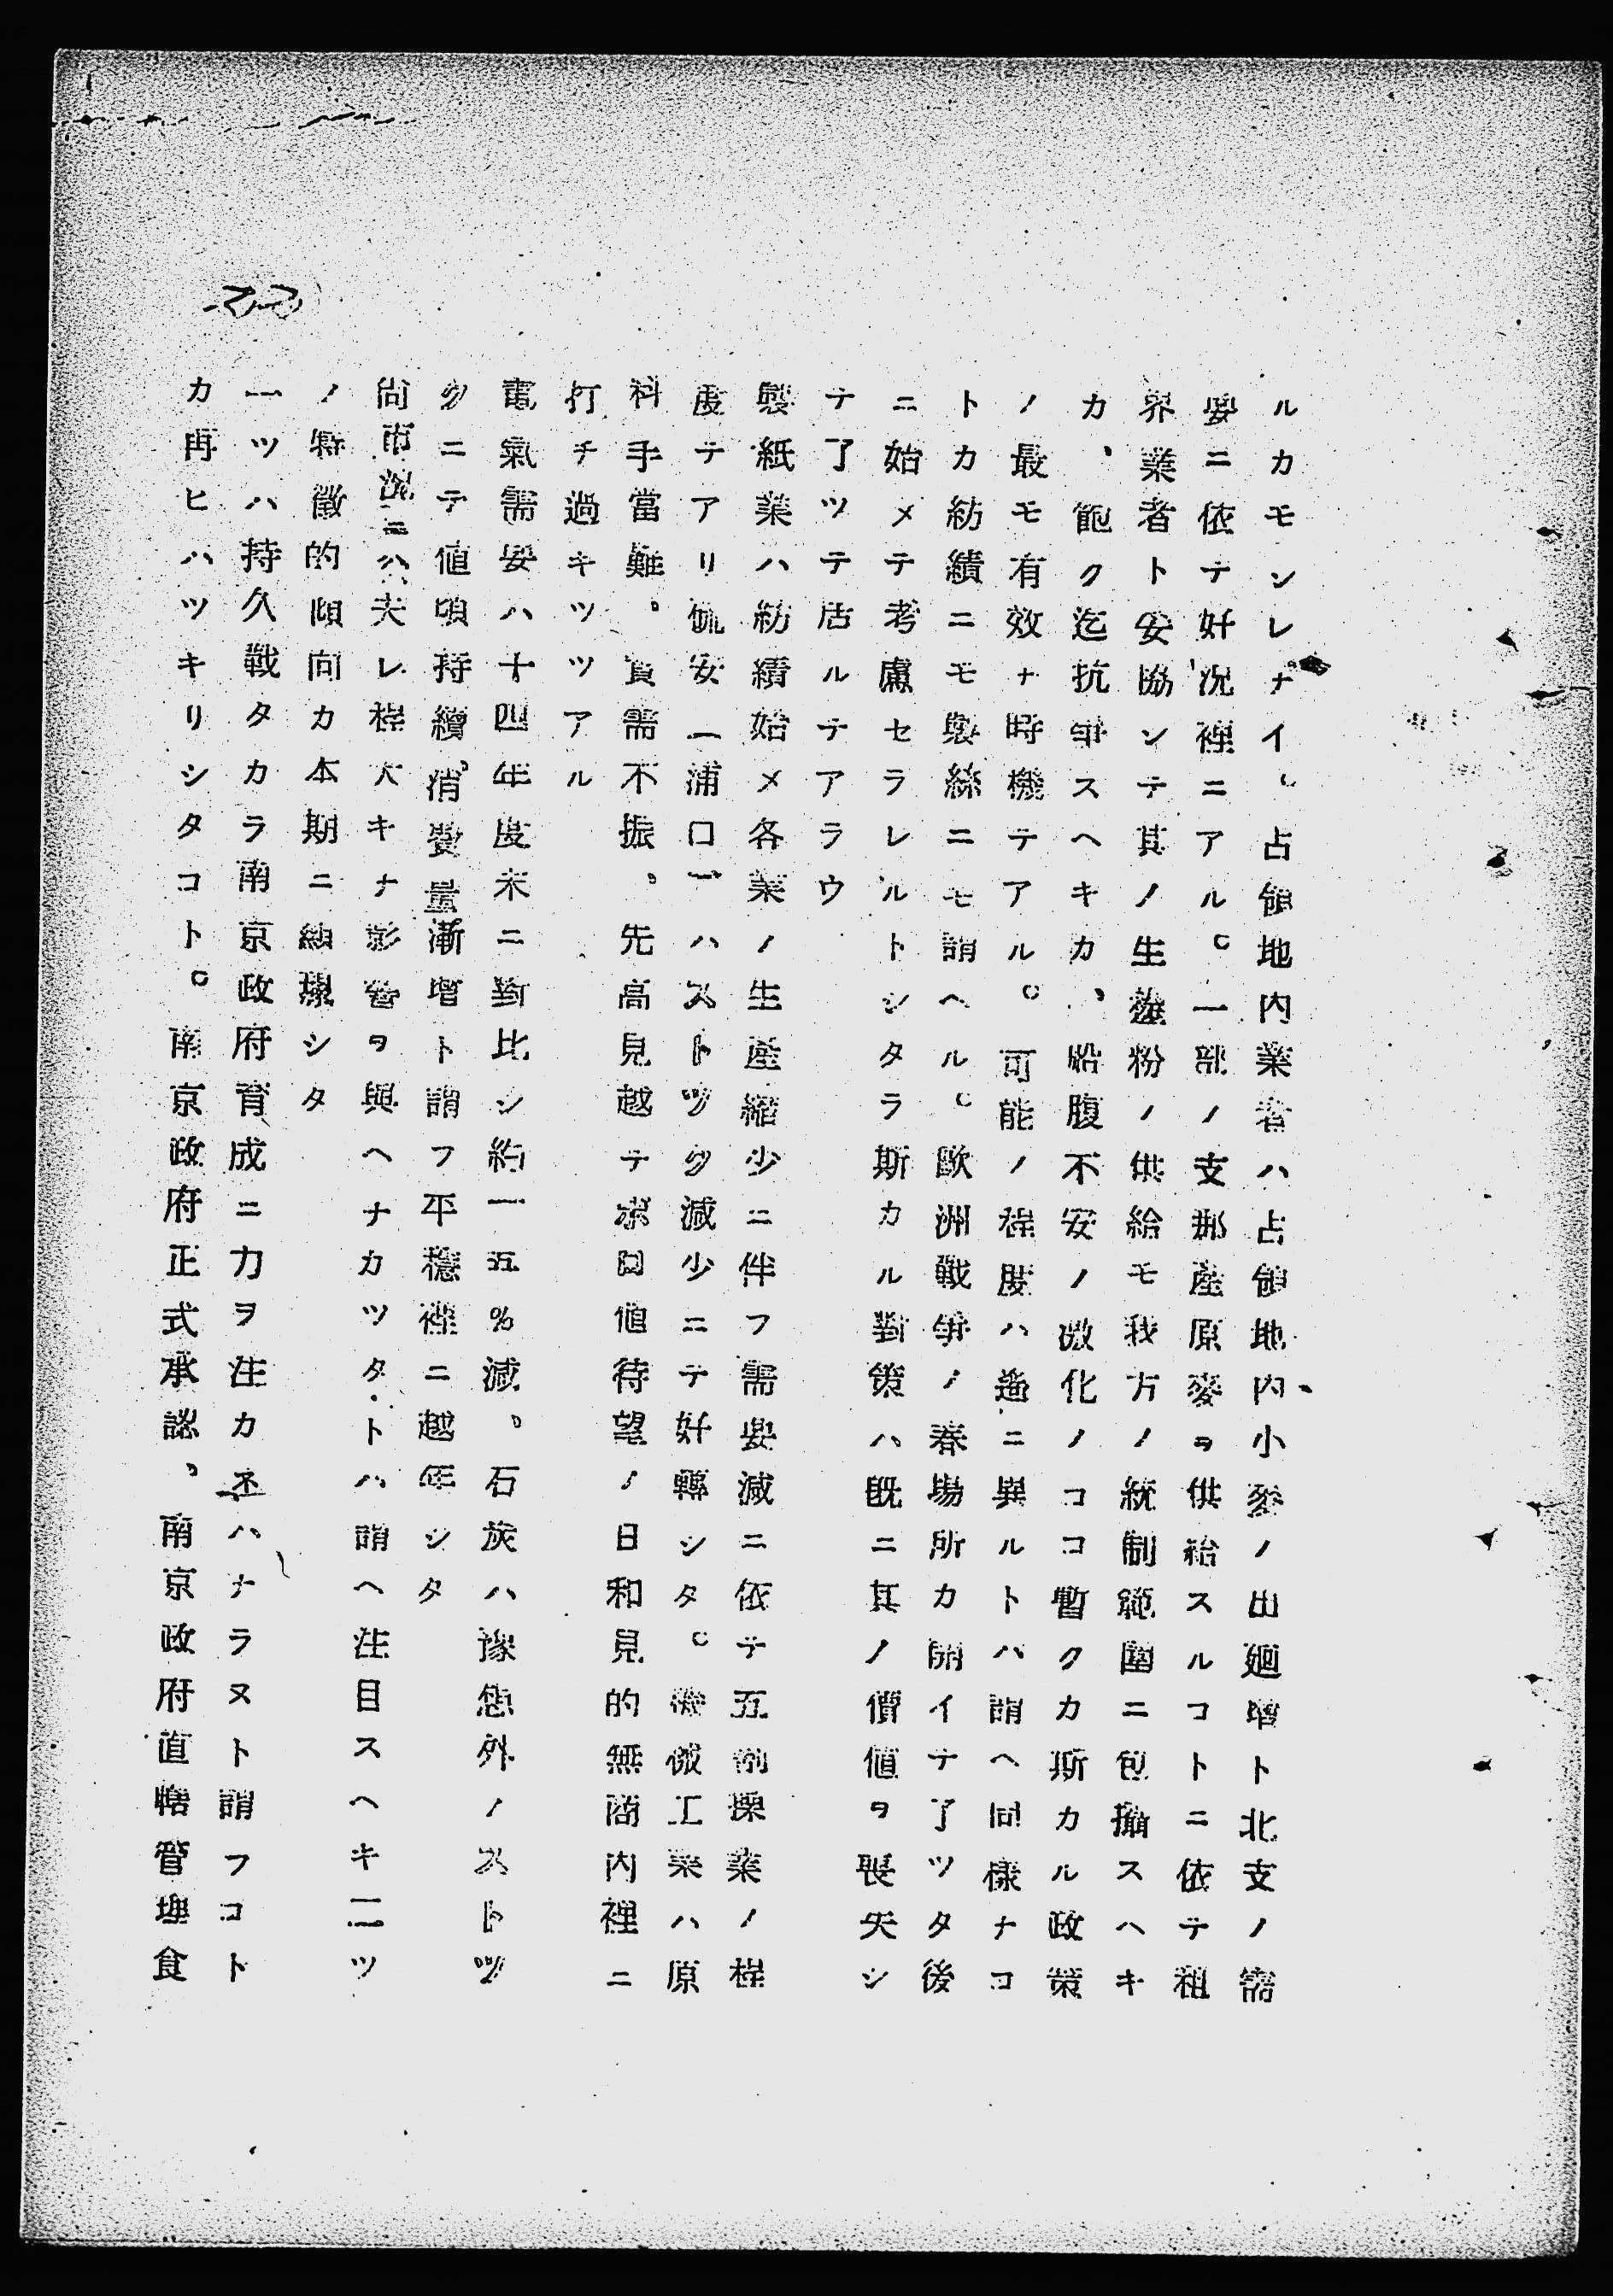 ルカモシレナイ。占領地内業者ハ占領地内小麥ノ出廻增ト北支ノ需
要ニ依テ好況裡ニアル。一部ノ支那產原麥ヲ供給スルコトニ依テ租
界業者ト妥協シテ其ノ生產粉ノ供給モ我方ノ統制範圍ニ包攝スヘキ
カ、飽ク迄抗爭スヘキカ、船腹不安ノ激化ノココ暫クカ斯カル政策
ノ最モ有效ナ時機テアル。可能ノ程度ハ遙ニ異ルトハ謂ヘ同樣ナコ
トカ紡績ニモ製絲ニモ謂ヘル。歐洲戰爭ノ春場所カ開イテ了ツタ後
ニ始メテ考慮セラレルトシタラ斯カル對策ハ既ニ其ノ價値ヲ喪失シ
テ了ツテ居ルテアラウ
製紙業ハ紡績始メ各業ノ生產縮少ニ伴フ需要減ニ依テ五割操業ノ程
度テアリ硫安(浦口)ハストツク減少ニテ好轉シタ。機械工業ハ原
料手當難。實需不振、先高見越テ唯値待望ノ日和見的無商內裡ニ
打チ過キツツアル
電氣需要ハ十四年度末ニ對比シ約一五%減。石炭ハ豫想外ノストツ
クニテ値頃持續、消費量漸增ト謂フ平穩裡ニ越年シタ
尚市況ニハ夫レ程大キナ影響ヲ與ヘナカツタトハ謂ヘ注目スヘキ二ツ
ノ特徵的傾向カ本期ニ現シタ
一ツハ持久戰タカラ南京政府育成ニ力ヲ注カネハナラヌト謂フコト
カ再ヒハツキリシタコト。南京政府正式承認、南京政府直轄管理食